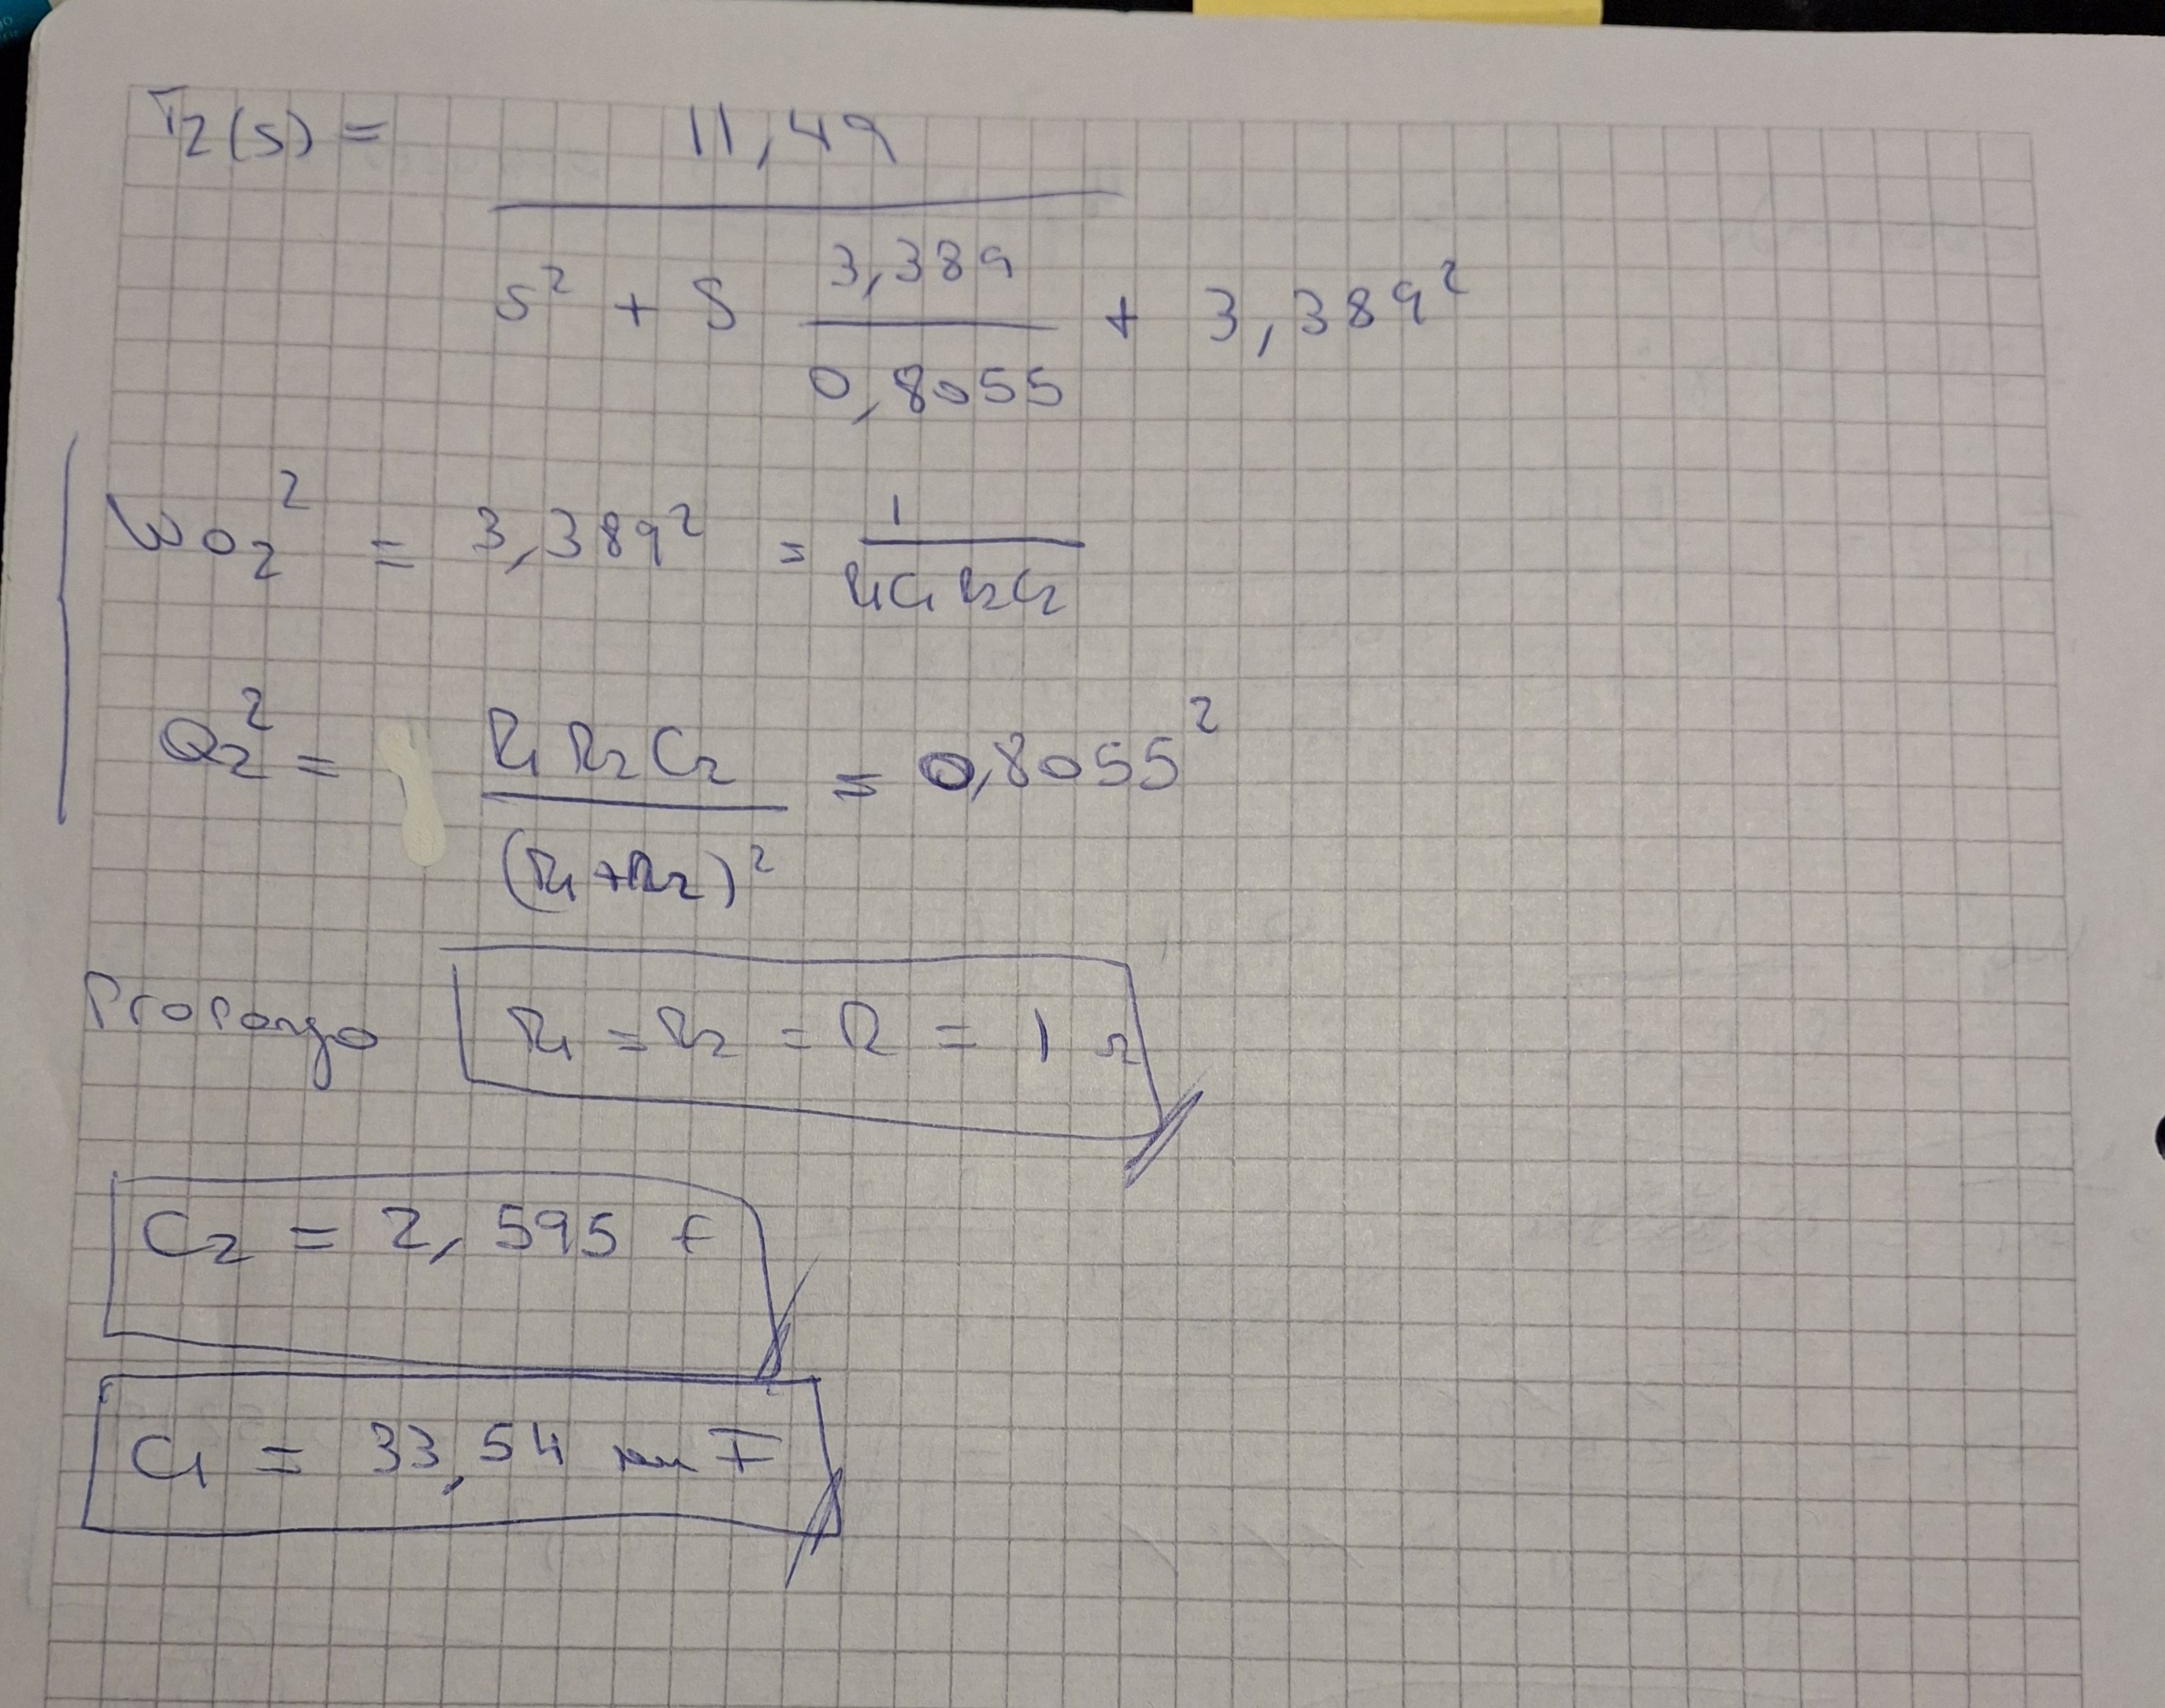 T2(s) = 11,49
s² + s 3,389 / 0,8055 + 3,389²
ωo2² = 3,389² = 1 / R1C1R2C2
Q2² = R1R2C2 / (R1+R2)² = 0,8055²
Propongo R1 = R2 = R = 1 Ω
C2 = 2,595 F
C1 = 33,54 m F